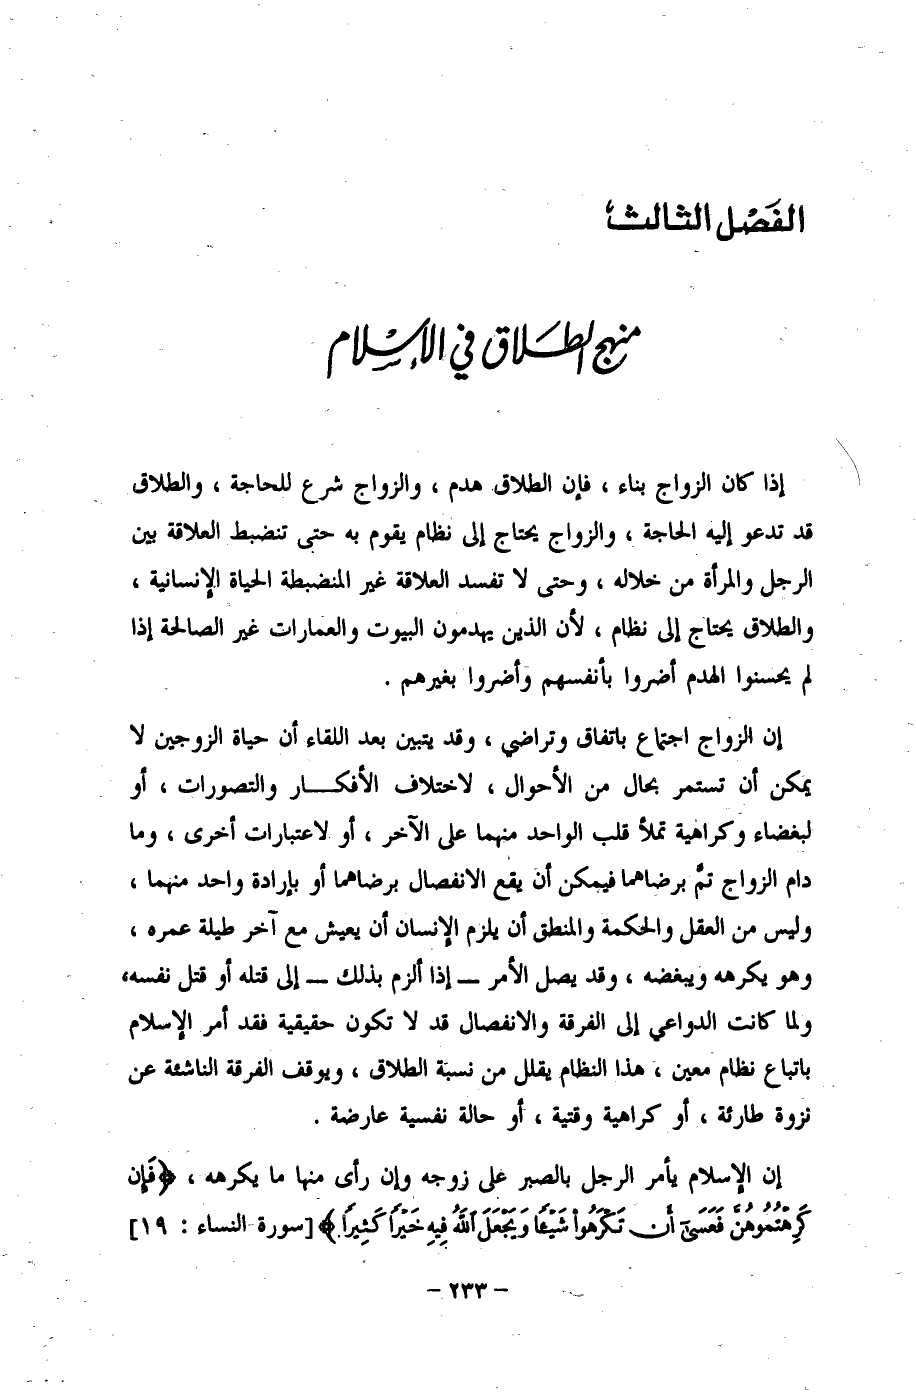 الفَصْل الثالث
منهج الطلاق في الإسْلام
إذا كان الزواج بناء ، فإن الطلاق هدم ، والزواج شرع للحاجة ، والطلاق
قد تدعو إليه الحاجة ، والزواج يحتاج إلى نظام يقوم به حتى تنضبط العلاقة بين
الرجل والمرأة من خلاله ، وحتى لا تفسد العلاقة غير المنضبطة الحياة الإنسانية ،
والطلاق يحتاج إلى نظام ، لأن الذين يهدمون البيوت والعمارات غير الصالحة إذا
لم يحسنوا الهدم أضروا بأنفسهم وأضروا بغيرهم .
إن الزواج اجتماع باتفاق وتراضي ، وقد يتبين بعد اللقاء أن حياة الزوجين لا
يمكن أن تستمر بحال من الأحوال ، لاختلاف الأفكــار والتصورات ، أو
لبغضاء وكراهية تملأ قلب الواحد منهما على الآخر ، أو لاعتبارات أخرى ، وما
دام الزواج تمَّ برضاهما فيمكن أن يقع الانفصال برضاهما أو بإرادة واحد منهما ،
وليس من العقل والحكمة والمنطق أن يلزم الإنسان أن يعيش مع آخر طيلة عمره ،
وهو يكرهه ويبغضه ، وقد يصل الأمر ــ إذا ألزم بذلك ــ إلى قتله أو قتل نفسه،
ولما كانت الدواعي إلى الفرقة والانفصال قد لا تكون حقيقية فقد أمر الإسلام
باتباع نظام معين ، هذا النظام يقلل من نسبة الطلاق ، ويوقف الفرقة الناشئة عن
نزوة طارئة ، أو كراهية وقتية ، أو حالة نفسية عارضة .
إن الإسلام يأمر الرجل بالصبر على زوجه وإن رأى منها ما يكرهه ، ﴿فَإِن
كَرِهْتُمُوهُنَّ فَعَسَىٰٓ أَن تَكْرَهُوا۟ شَيْـًٔا وَيَجْعَلَ ٱللَّهُ فِيهِ خَيْرًا كَثِيرًا﴾ [سورة النساء : ١٩]
– ٢٣٣ –